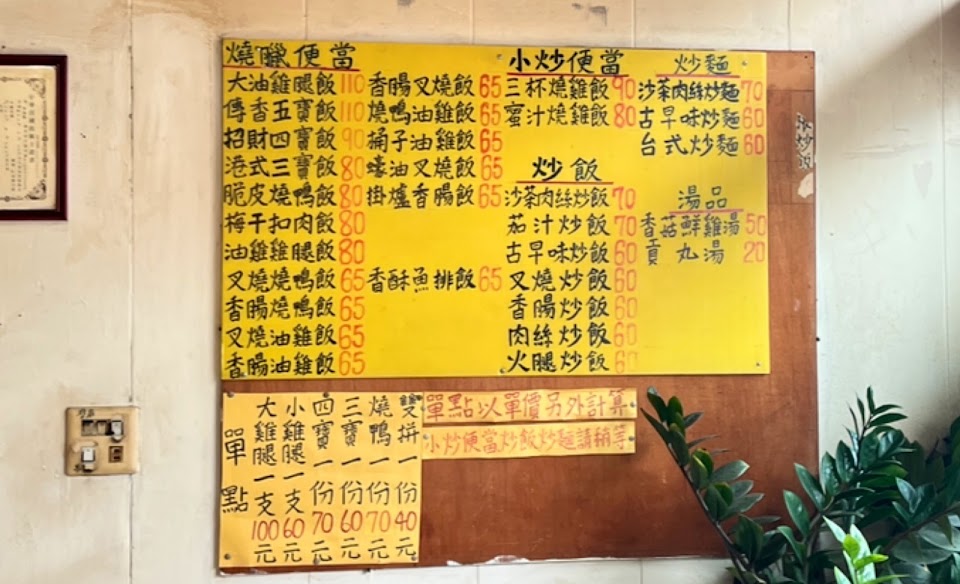 燒臘便當
大油雞腿飯110
傳香五寶飯110
招財四寶飯90
港式三寶飯80
脆皮燒鴨飯80
梅干扣肉飯80
油雞雞腿飯80
叉燒燒鴨飯65
香腸燒鴨飯65
叉燒油雞飯65
香腸油雞飯65
香腸叉燒飯65
燒鴨油雞飯65
桶子油雞飯65
蠔油叉燒飯65
掛爐香腸飯65
香酥魚排飯65
小炒便當
三杯燒雞飯90
蜜汁燒雞飯80
炒飯
沙茶肉絲炒飯70
茄汁炒飯70
古早味炒飯60
叉燒炒飯60
香腸炒飯60
肉絲炒飯60
火腿炒飯60
炒麵
沙茶肉絲炒麵70
古早味炒麵60
台式炒麵60
湯品
香菇鮮雞湯50
貢丸湯20
單點
大雞腿一支100元
小雞腿一支60元
四寶一份70元
三寶一份60元
燒鴨一份70元
雙拼一份40元
單點以單價另外計算
小炒便當炒飯炒麵請稍等